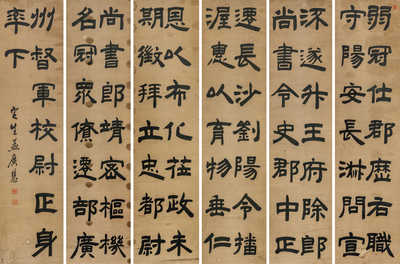 弱冠仕郡歷右職
守陽安長淋問宣
流遂升王府除郎
尚書令史郡中正
遷長沙劉陽令播
渥惠以育物垂仁
恩以布化莅政未
期徵拜立忠都尉
尚書郎靖密樞機
名冠眾僚遷部廣
州督軍校尉正身
率下
定生孟廣慧